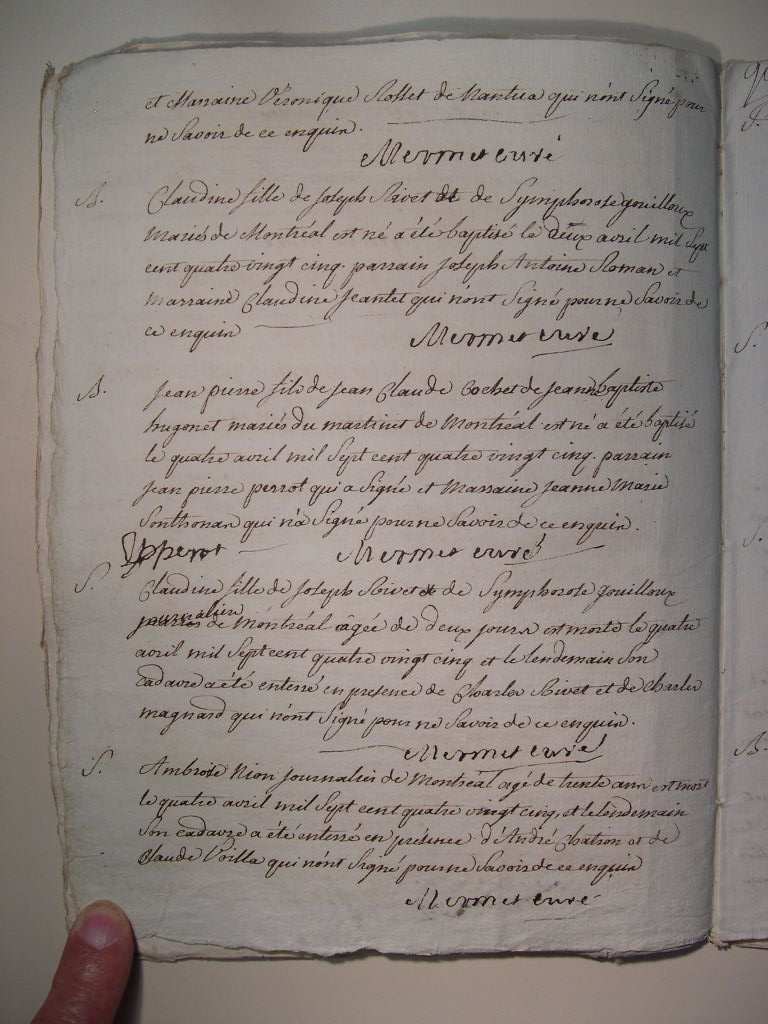 et Marraine Véronique Rosset de Nantua qui n'ont Signé pour
ne Savoir de ce enquin.
Mermet curé
B. Claudine fille de Joseph Rivet et de Symphorose gouilloux
Mariés de Montréal est né a été baptisé le deux avril mil Sept
cent quatre vingt cinq. parrain Joseph Antoine Roman et
Marraine Claudine Jeantet qui n'ont Signé pour ne Savoir de
ce enquin
Mermet curé
B. Jean pierre fils de Jean Claude Cochet de Jeanne baptiste
hugonet mariés du martinet de Montréal est né a été baptisé
le quatre avril mil Sept cent quatre vingt cinq. parrain
Jean pierre perrot qui a Signé et Marraine Jeanne Marie
Sonthonax qui n'a Signé pour ne Savoir de ce enquin.
Jpperrot Mermet curé
S. Claudine fille de Joseph Rivet et de Symphorose gouilloux
journalier
de Montréal âgée de deux jours est morte le quatre
avril mil Sept cent quatre vingt cinq et le lendemain Son
Cadavre a été enterré en presence de Charles Rivet et de Charles
magnard qui n'ont Signé pour ne Savoir de ce enquin.
Mermet curé
S. Ambroise Nion journalier de Montréal agé de trente ans est mort
le quatre avril mil Sept cent quatre vingt cinq, et le lendemain
Son cadavre a été enterré en présence d'André Chatron et de
Claude Voilla qui n'ont Signé pour ne Savoir de ce enquin
Mermet curé
S.
S.
B.